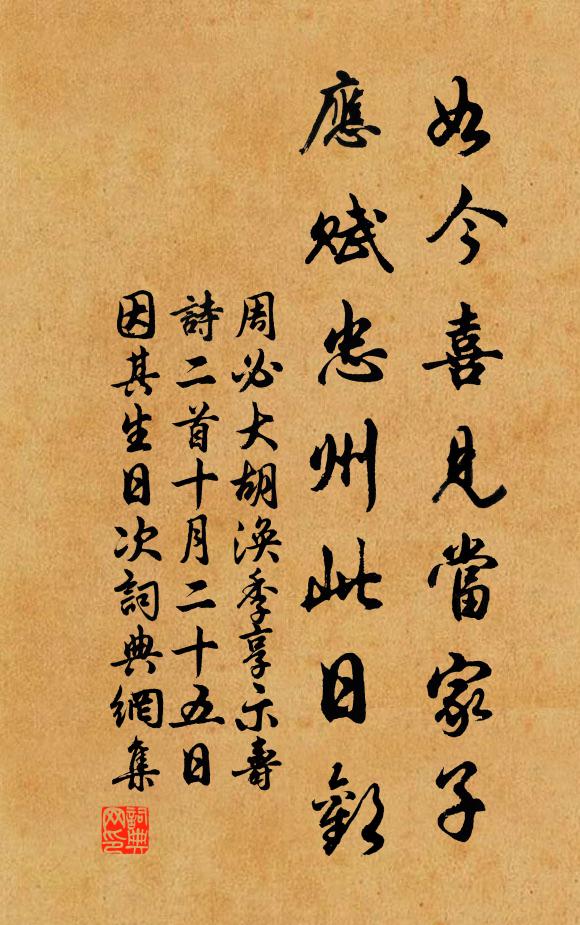 如今喜見當家子
應賦忠州此日歡
周必大胡渙季享示壽
詩二首十月二十五日
因其生日次詞典網集
詞典网印